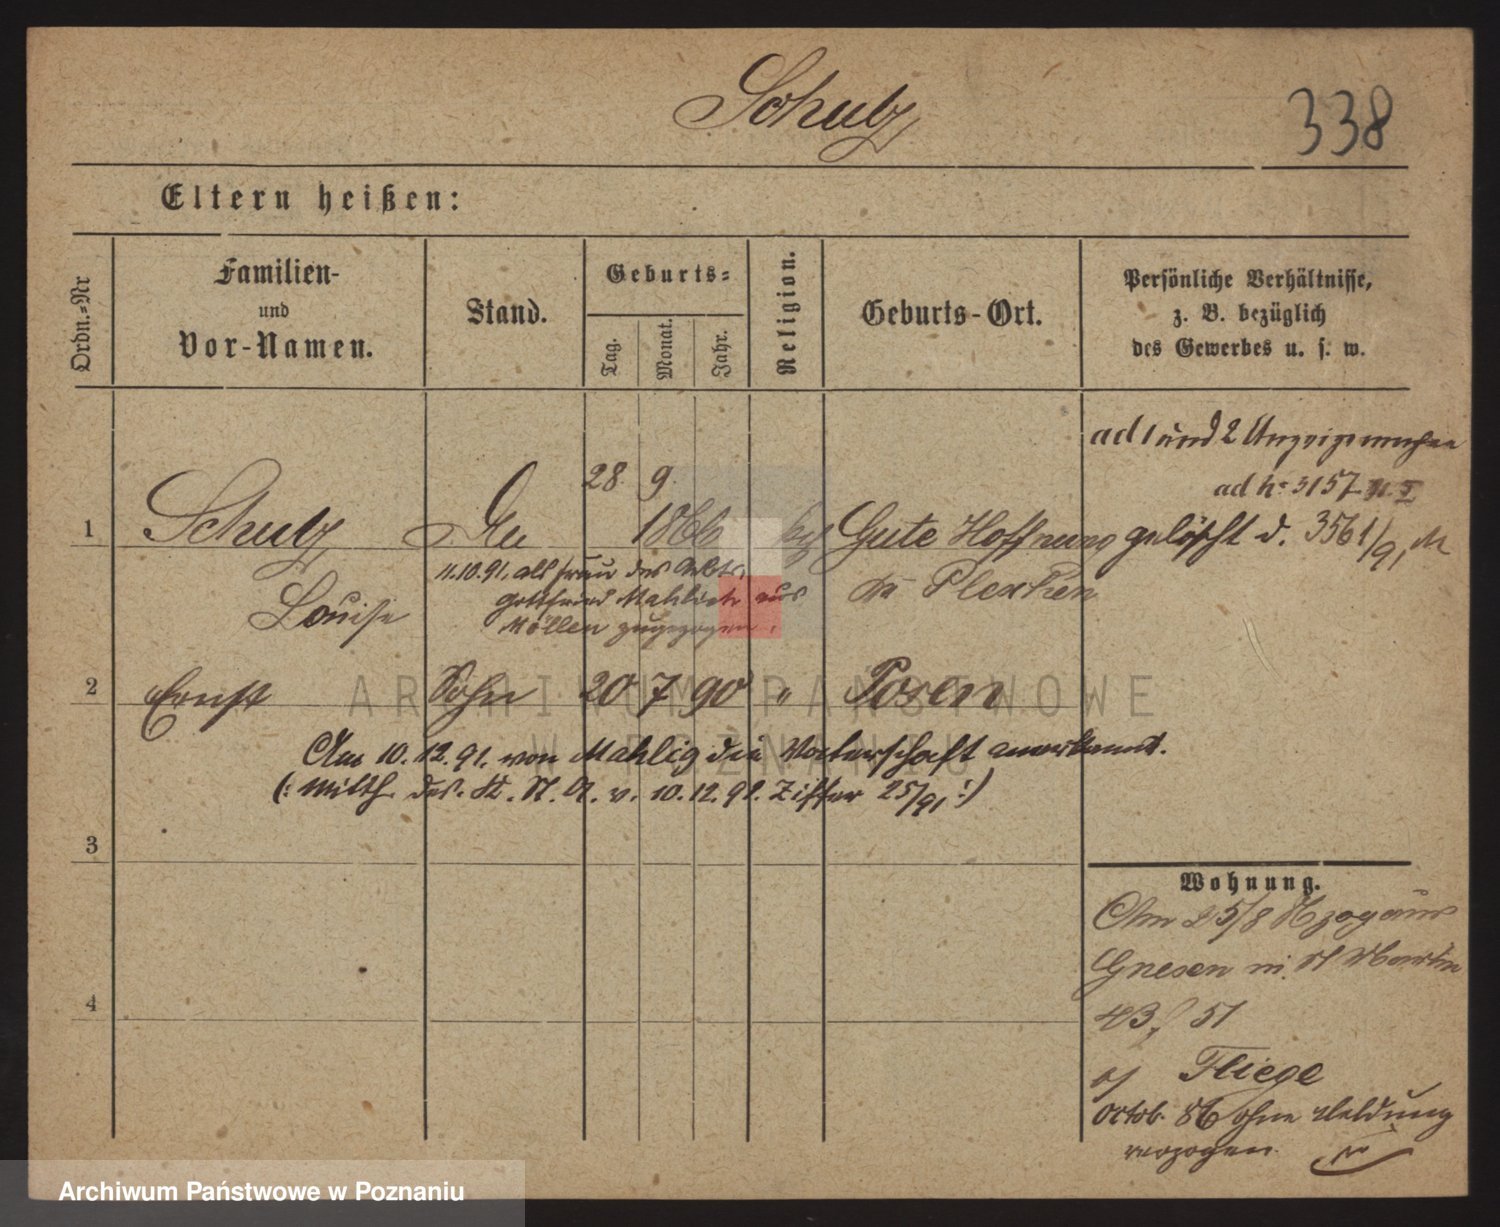 Schulz
338
Eltern heißen:
Ordn.-Nr
Familien-
und
Vor-Namen.
Stand.
Geburts-
Tag.
Monat.
Jahr.
Religion.
Geburts-Ort.
Persönliche Verhältnisse,
z. B. bezüglich
des Gewerbes u. s. w.
ad 1 und 2
ad No 3157
1 Schulz 28. 9. 1866 Gute Hoffnung gelöscht d. 3561/91 M
Louise
11.10.91. als Frau des Arbts. Pleschen
Gottfried Mahlich aus
Möllen zugezogen.
2 Ernst Sohn 20 7 90 " Posen
Am 10.12.91. von Mahlig die Vaterschaft anerkannt.
(: Mitth. des. St. A. v. 10.12.91. Ziffer 25/91 :)
3
4
Wohnung.
Am 25/8 aus
Gnesen n. St Martin
43, 51
b/ Fliege
Octob. 86 ohne Meldung
verzogen.
ARCHIWUM PAŃSTWOWE
W POZNANIU
Archiwum Państwowe w Poznaniu